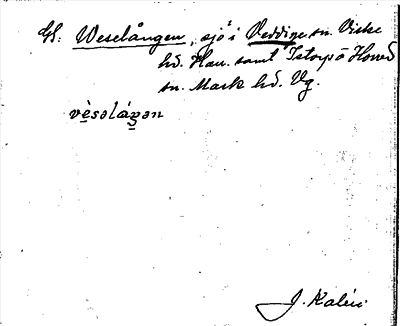 Gl. Weselången, sjö i Veddige sn. Viske
hd. Hall. samt Istorp o Horred
sn. Mark hd. Vg.
vèsəláŋən
J. Kalén